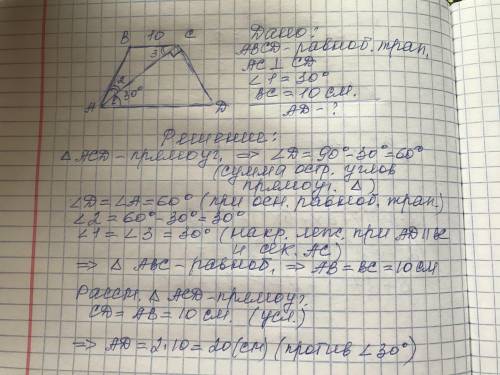 B 10 C
3
2
A 1 30° D
Дано:
ABCD - равноб. трап.
AC ⊥ CD
∠1 = 30°
BC = 10 см.
AD - ?
Решение:
△ ACD - прямоуг. ⇒ ∠D = 90° - 30° = 60°
(сумма остр. углов
прямоуг. △)
∠D = ∠A = 60° (при осн. равноб. трап.)
∠2 = 60° - 30° = 30°
∠1 = ∠3 = 30° (накр. леж. при AD || BC
и сек. AC)
⇒ △ ABC - равноб. ⇒ AB = BC = 10 см
Рассм. △ ACD - прямоуг.
CD = AB = 10 см. (усл.)
⇒ AD = 2·10 = 20 (см) (против ∠30°)